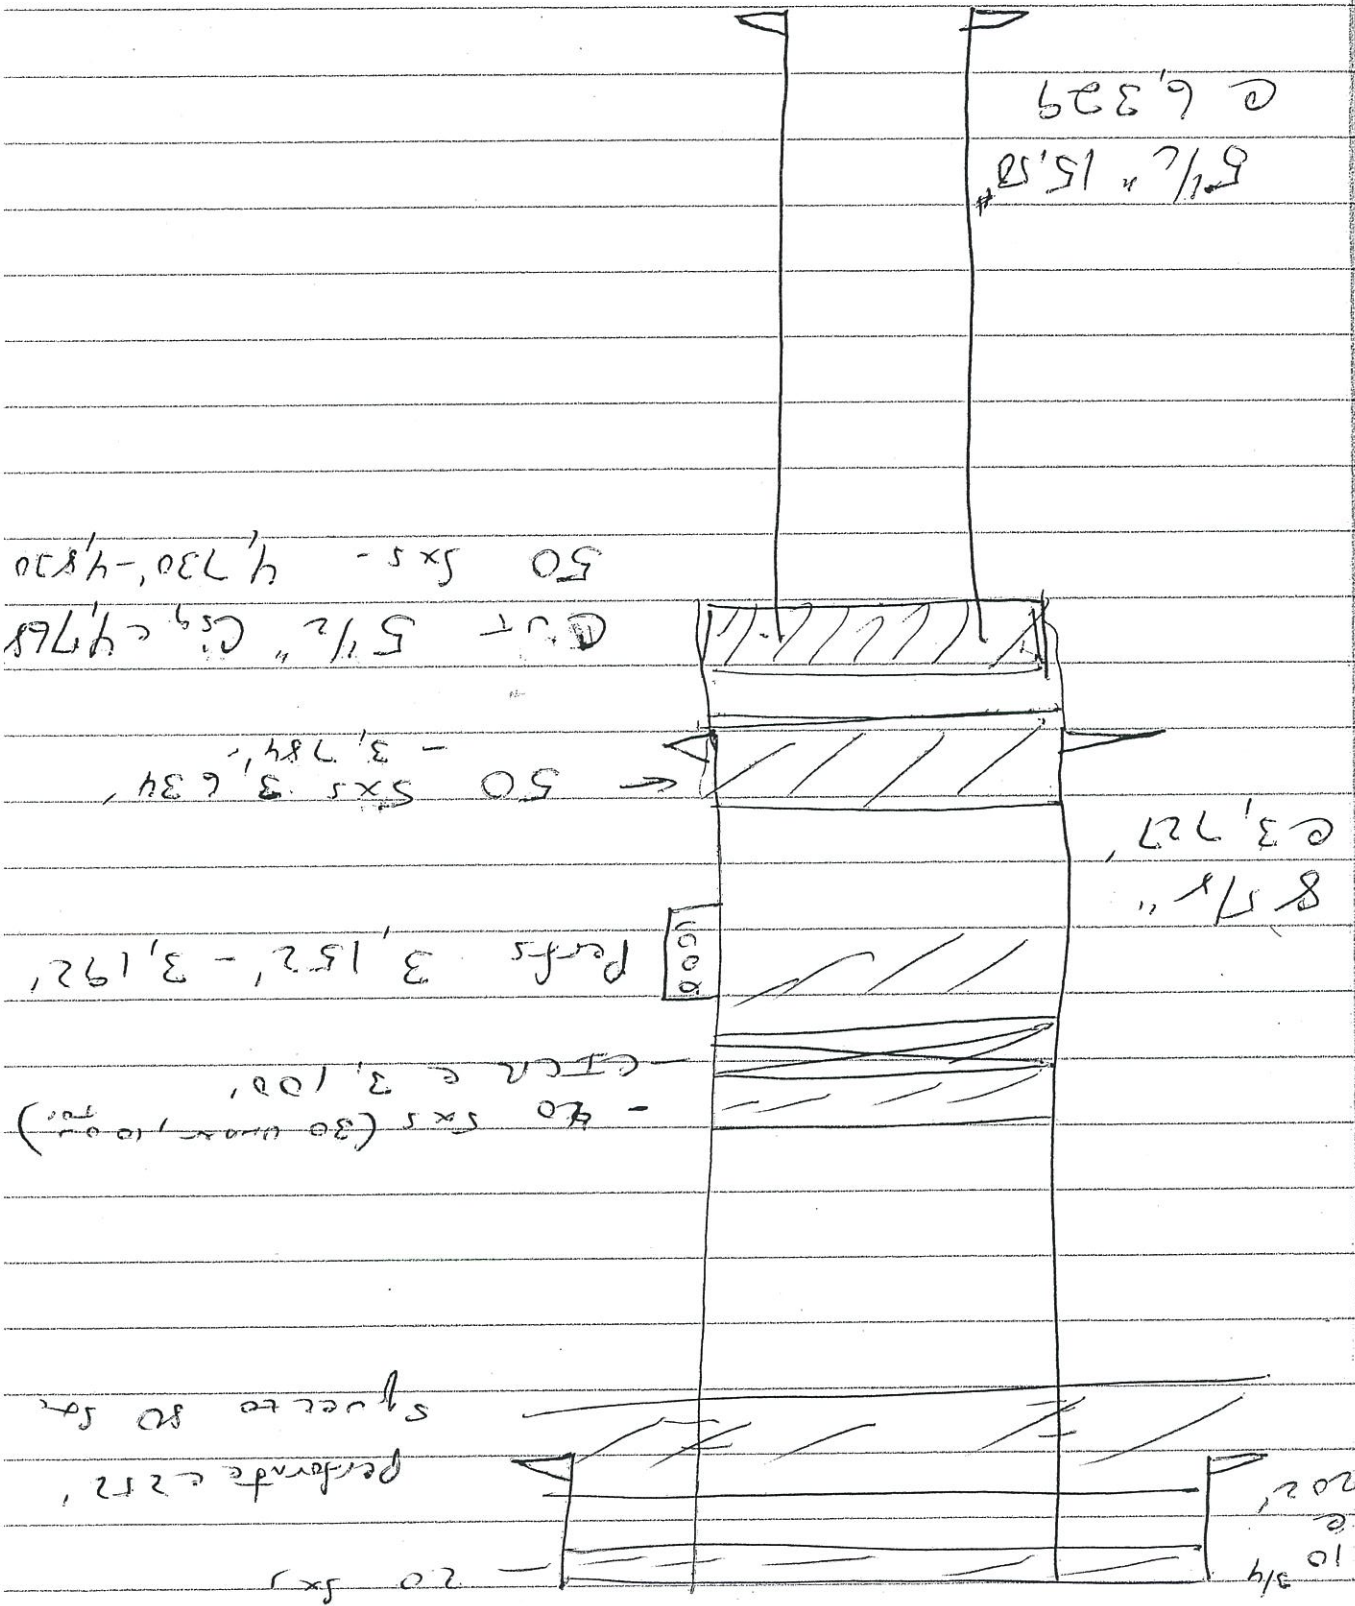 20 sxs
10 3/4
@
202'
perforate @ 252'
80
- 40 sxs (30 under, 10 on top)
- CICR @ 3,100'
Perfs 3,152' - 3,192'
8 5/8"
@ 3,727'
50 sxs 3,634'
- 3,784'
Cut 5 1/2" Csg @ 4,768
50 sxs - 4,730'-4,830
5 1/2" 15.50#
@ 6,329